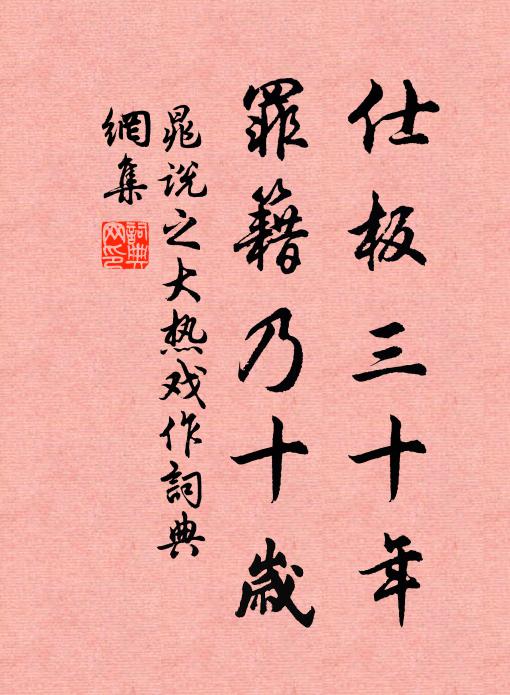 仕板三十年
罪籍乃十歲
晁说之大热戏作詞典
網集
詞典網印